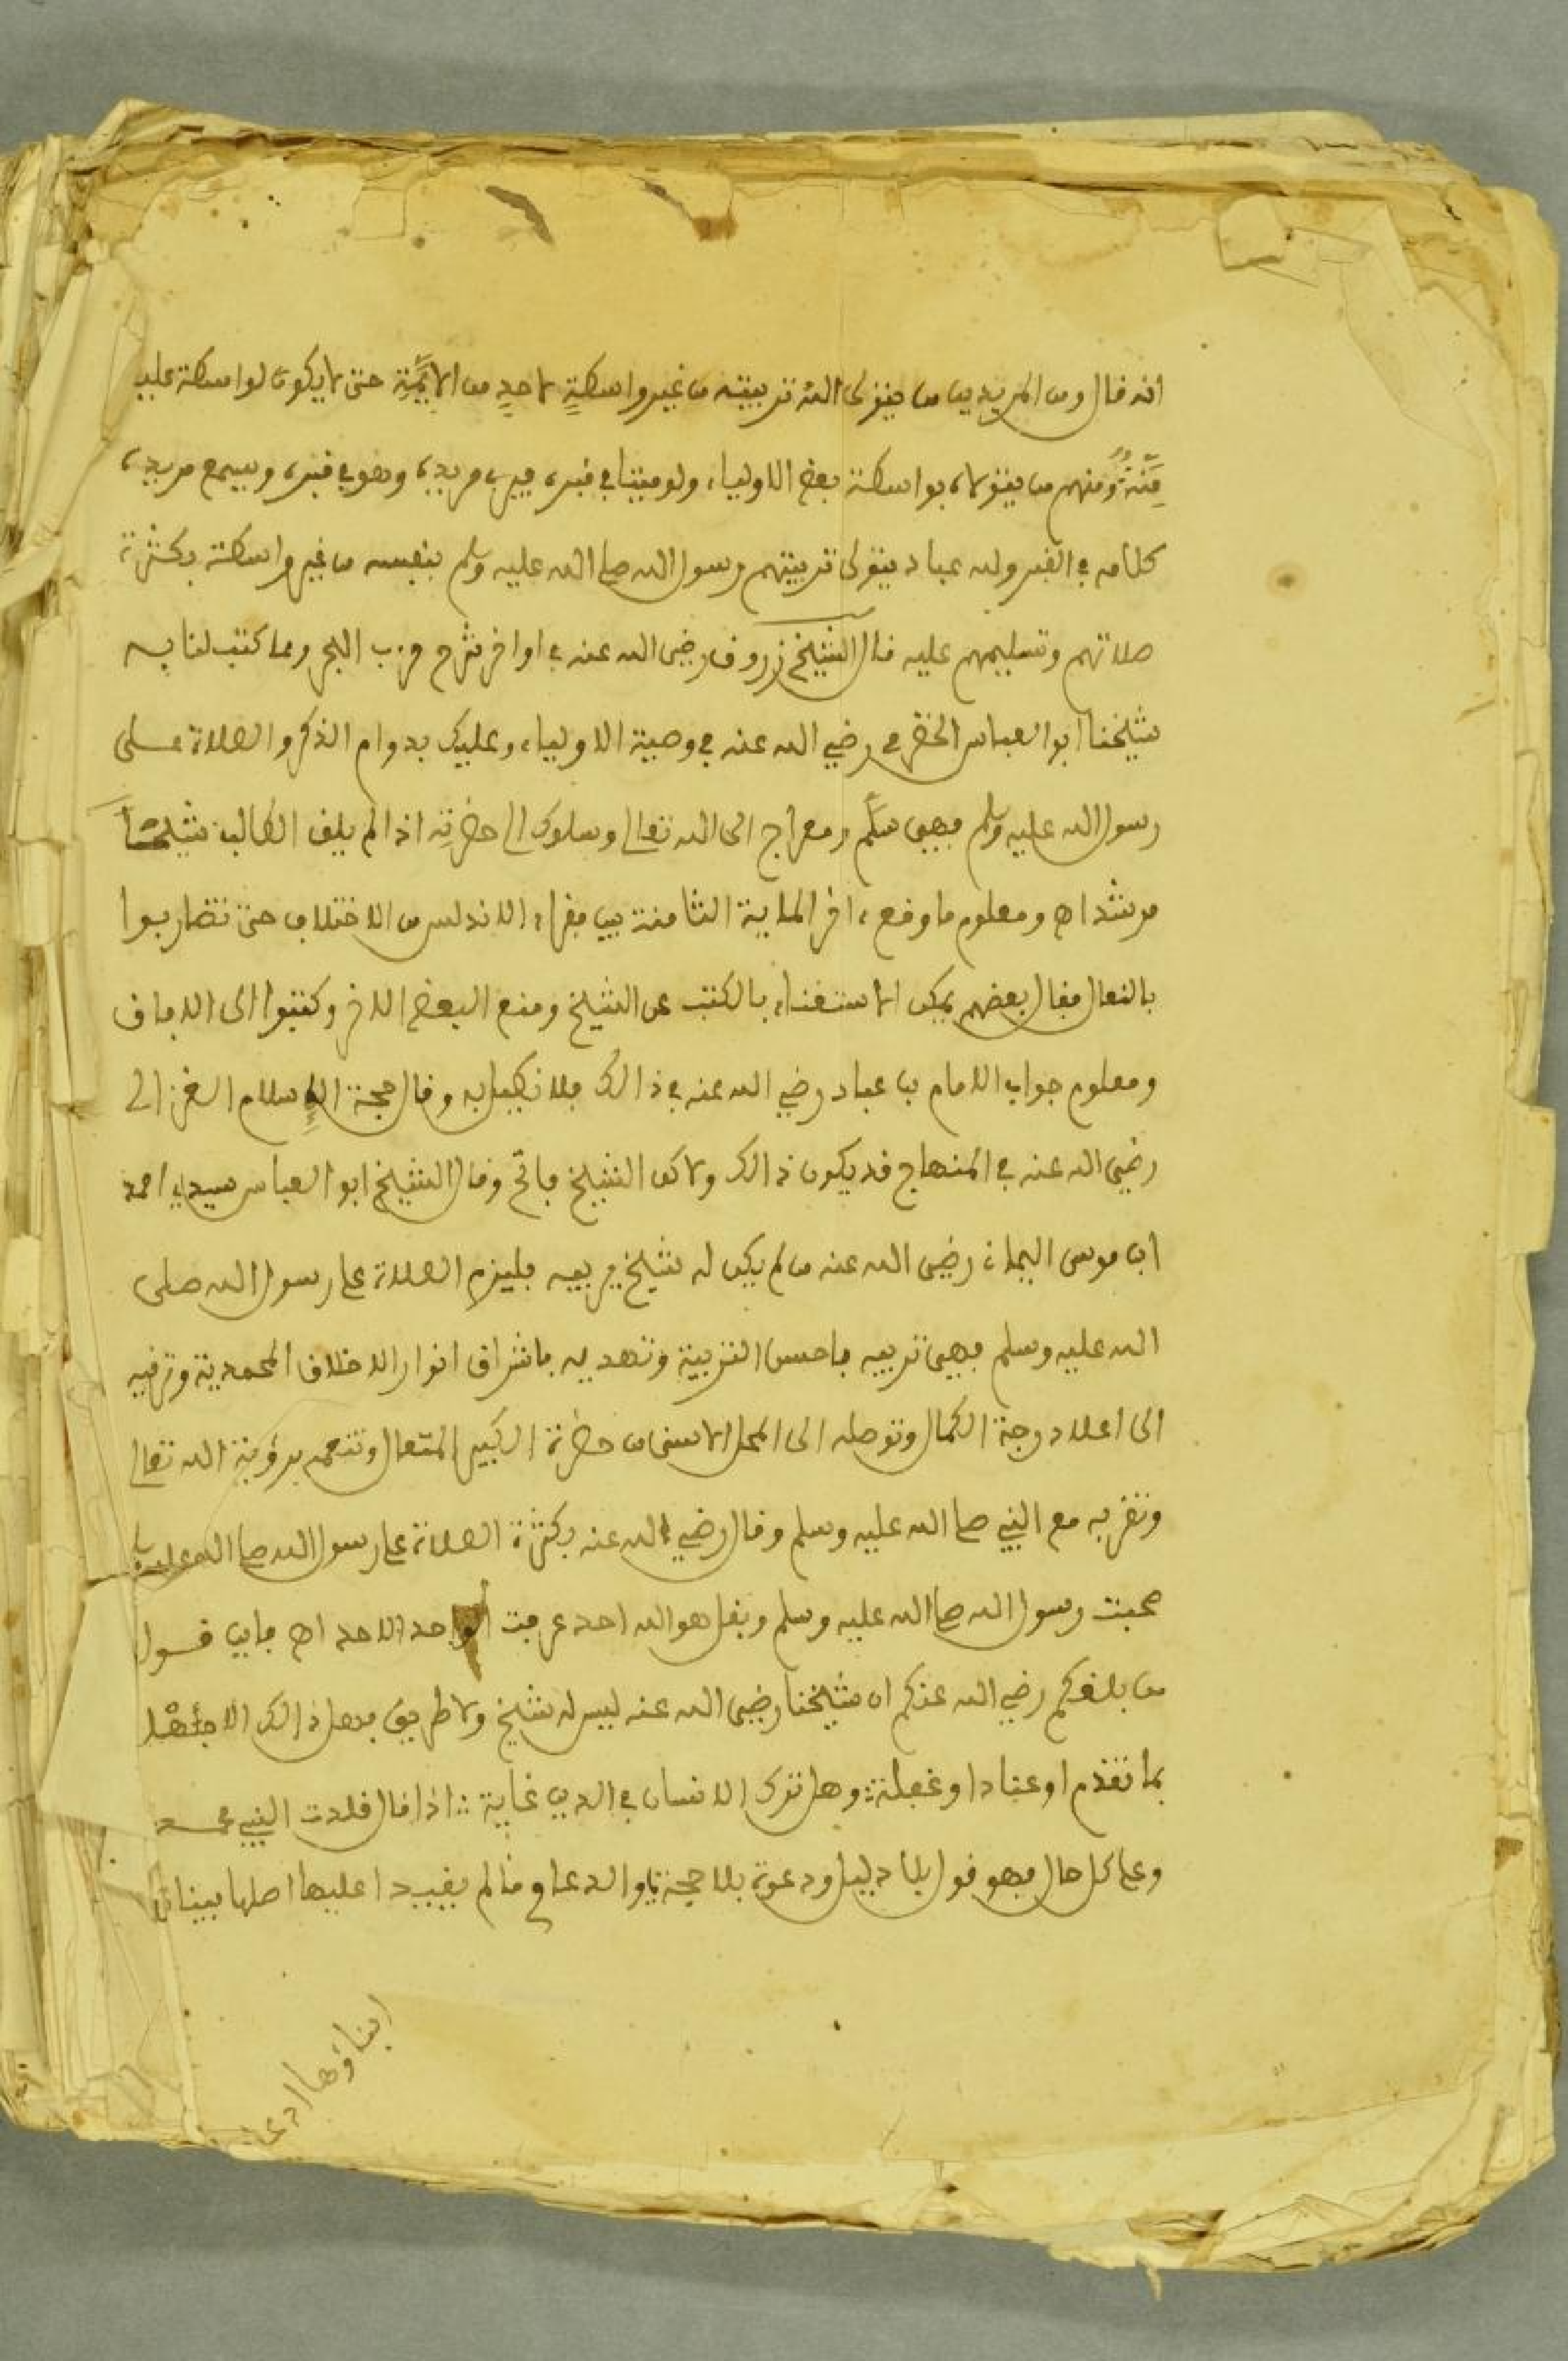 انه قال ومن المريدين من يتولى الله تربيته من غير واسطةٍ لاحدٍ من الايمَّةِ حتى لايكون لواسطة عليه
مِنَّةٌ ومنهم من يتولاه بواسطة بعض الاولياء ولو ميتا في قبره فيربي مريده وهو في قبره ويسمع مريده
كلامه في القبر ولله عباد يتولى تربيتهم رسول الله صلى الله عليه وسلم بنفسه من غير واسطة بكثرة
صلاتهم وتسليمهم عليه قال الشيخ زروق رضي الله عنه في اواخر شرح حزب البحر ومما كتب لنا به
شيخنا ابو العباس الحضرمي رضي الله عنه في وصية الاولياء وعليك بدوام الذكر والصلاة على
رسول الله عليه وسلم فهي سلَّم ومعراج الى الله تعالى وسلوك الى حضرته اذا لم يلق الطالب شيخاً
مرشدا اه ومعلوم ما وقع ءاخر الماية الثامنة بين فقراء الاندلس من الاختلاف حتى تضاربوا
بالنعال فقال بعضهم يمكن الاستغناء بالكتب عن الشيخ ومنع البعض الاخر وكتبوا الى الافاق
ومعلوم جواب الامام بن عباد رضي الله عنه في ذالك فلا نطيل به وقال حجة الإسلام الغزالى
رضي الله عنه في المنهاج قد يكون ذالك ولاكن الشيخ فاتح وقال الشيخ ابو العباس سيدي احمد
ابن موسى اليماني رضي الله عنه من لم يكن له شيخ يربيه فليلزم الصلاة على رسول الله صلى
الله عليه وسلم فهي تربيه باحسن التربية وتهديه باشراق انوار الاخلاق المحمدية وترقيه
الى اعلا درجة الكمال وتوصله الى المحل الاسنى من حضرة الكبير المتعال وتنعمه برؤية الله تعالى
وتقربه مع النبي صلى الله عليه وسلم وقال رضي الله عنه بكثرة الصلاة على رسول الله صلى الله عليه
صحبت رسول الله صلى الله عليه وسلم وبقل هو الله احد عرفت الواحد الاحد اه فاين قول
من بلغكم رضي الله عنكم ان شيخنا رضي الله عنه ليس له شيخ ولا طريق فهل ذالك الا جهلا
بما تقدم او عنادا او غفلة وهل ترك الانسان في الدين غاية اذا قال قلدت النبي محمد
وعلى كل حال فهو قول بلا دليل ودعوة بلا حجة والدعاوي مالم يقيدوا عليها اصلها بينات
ابناؤها ادعيا